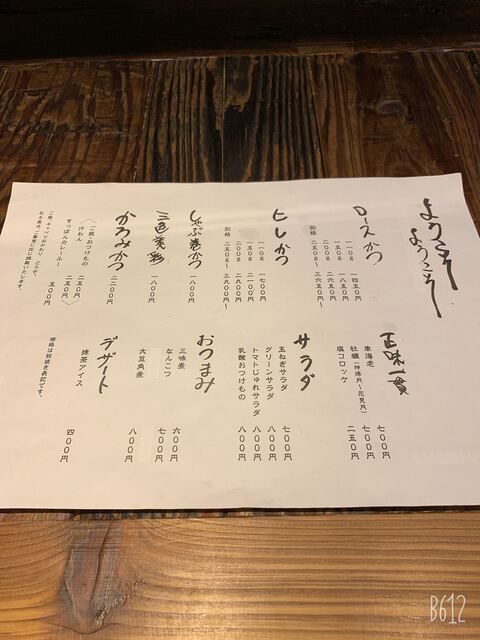 ようこそ
ようこそ
ロースかつ
一一〇g 一四五〇円
一五〇g 一八五〇円
二〇〇g 二三五〇円
別格 二五〇g〜 三六五〇円〜
ヒレかつ
一一〇g 一七〇〇円
一五〇g 二一〇〇円
二〇〇g 二九〇〇円
別格 二五〇g〜 三九〇〇円〜
しゃぶ巻かつ
一八〇〇円
三色美彩
一八〇〇円
かろみかつ
二二〇〇円
〈ご飯・おつけもの
汁わん 二五〇円〉
すっぽんカレー 五〇〇円
ご飯、キャベツおかわり、どうぞ。
正味一貫
車海老 七〇〇円
牡蠣(神溝月〜花見月) 七〇〇円
塩コロッケ 二五〇円
サラダ
玉ねぎサラダ 七〇〇円
グリーンサラダ 八〇〇円
トマトじゅれサラダ 八〇〇円
乳酸おつけもの 八〇〇円
おつまみ
三味煮 六〇〇円
なんこつ 七〇〇円
大豆角煮 八〇〇円
デザート
抹茶アイス 四〇〇円
価格は税抜き表記です。
B612